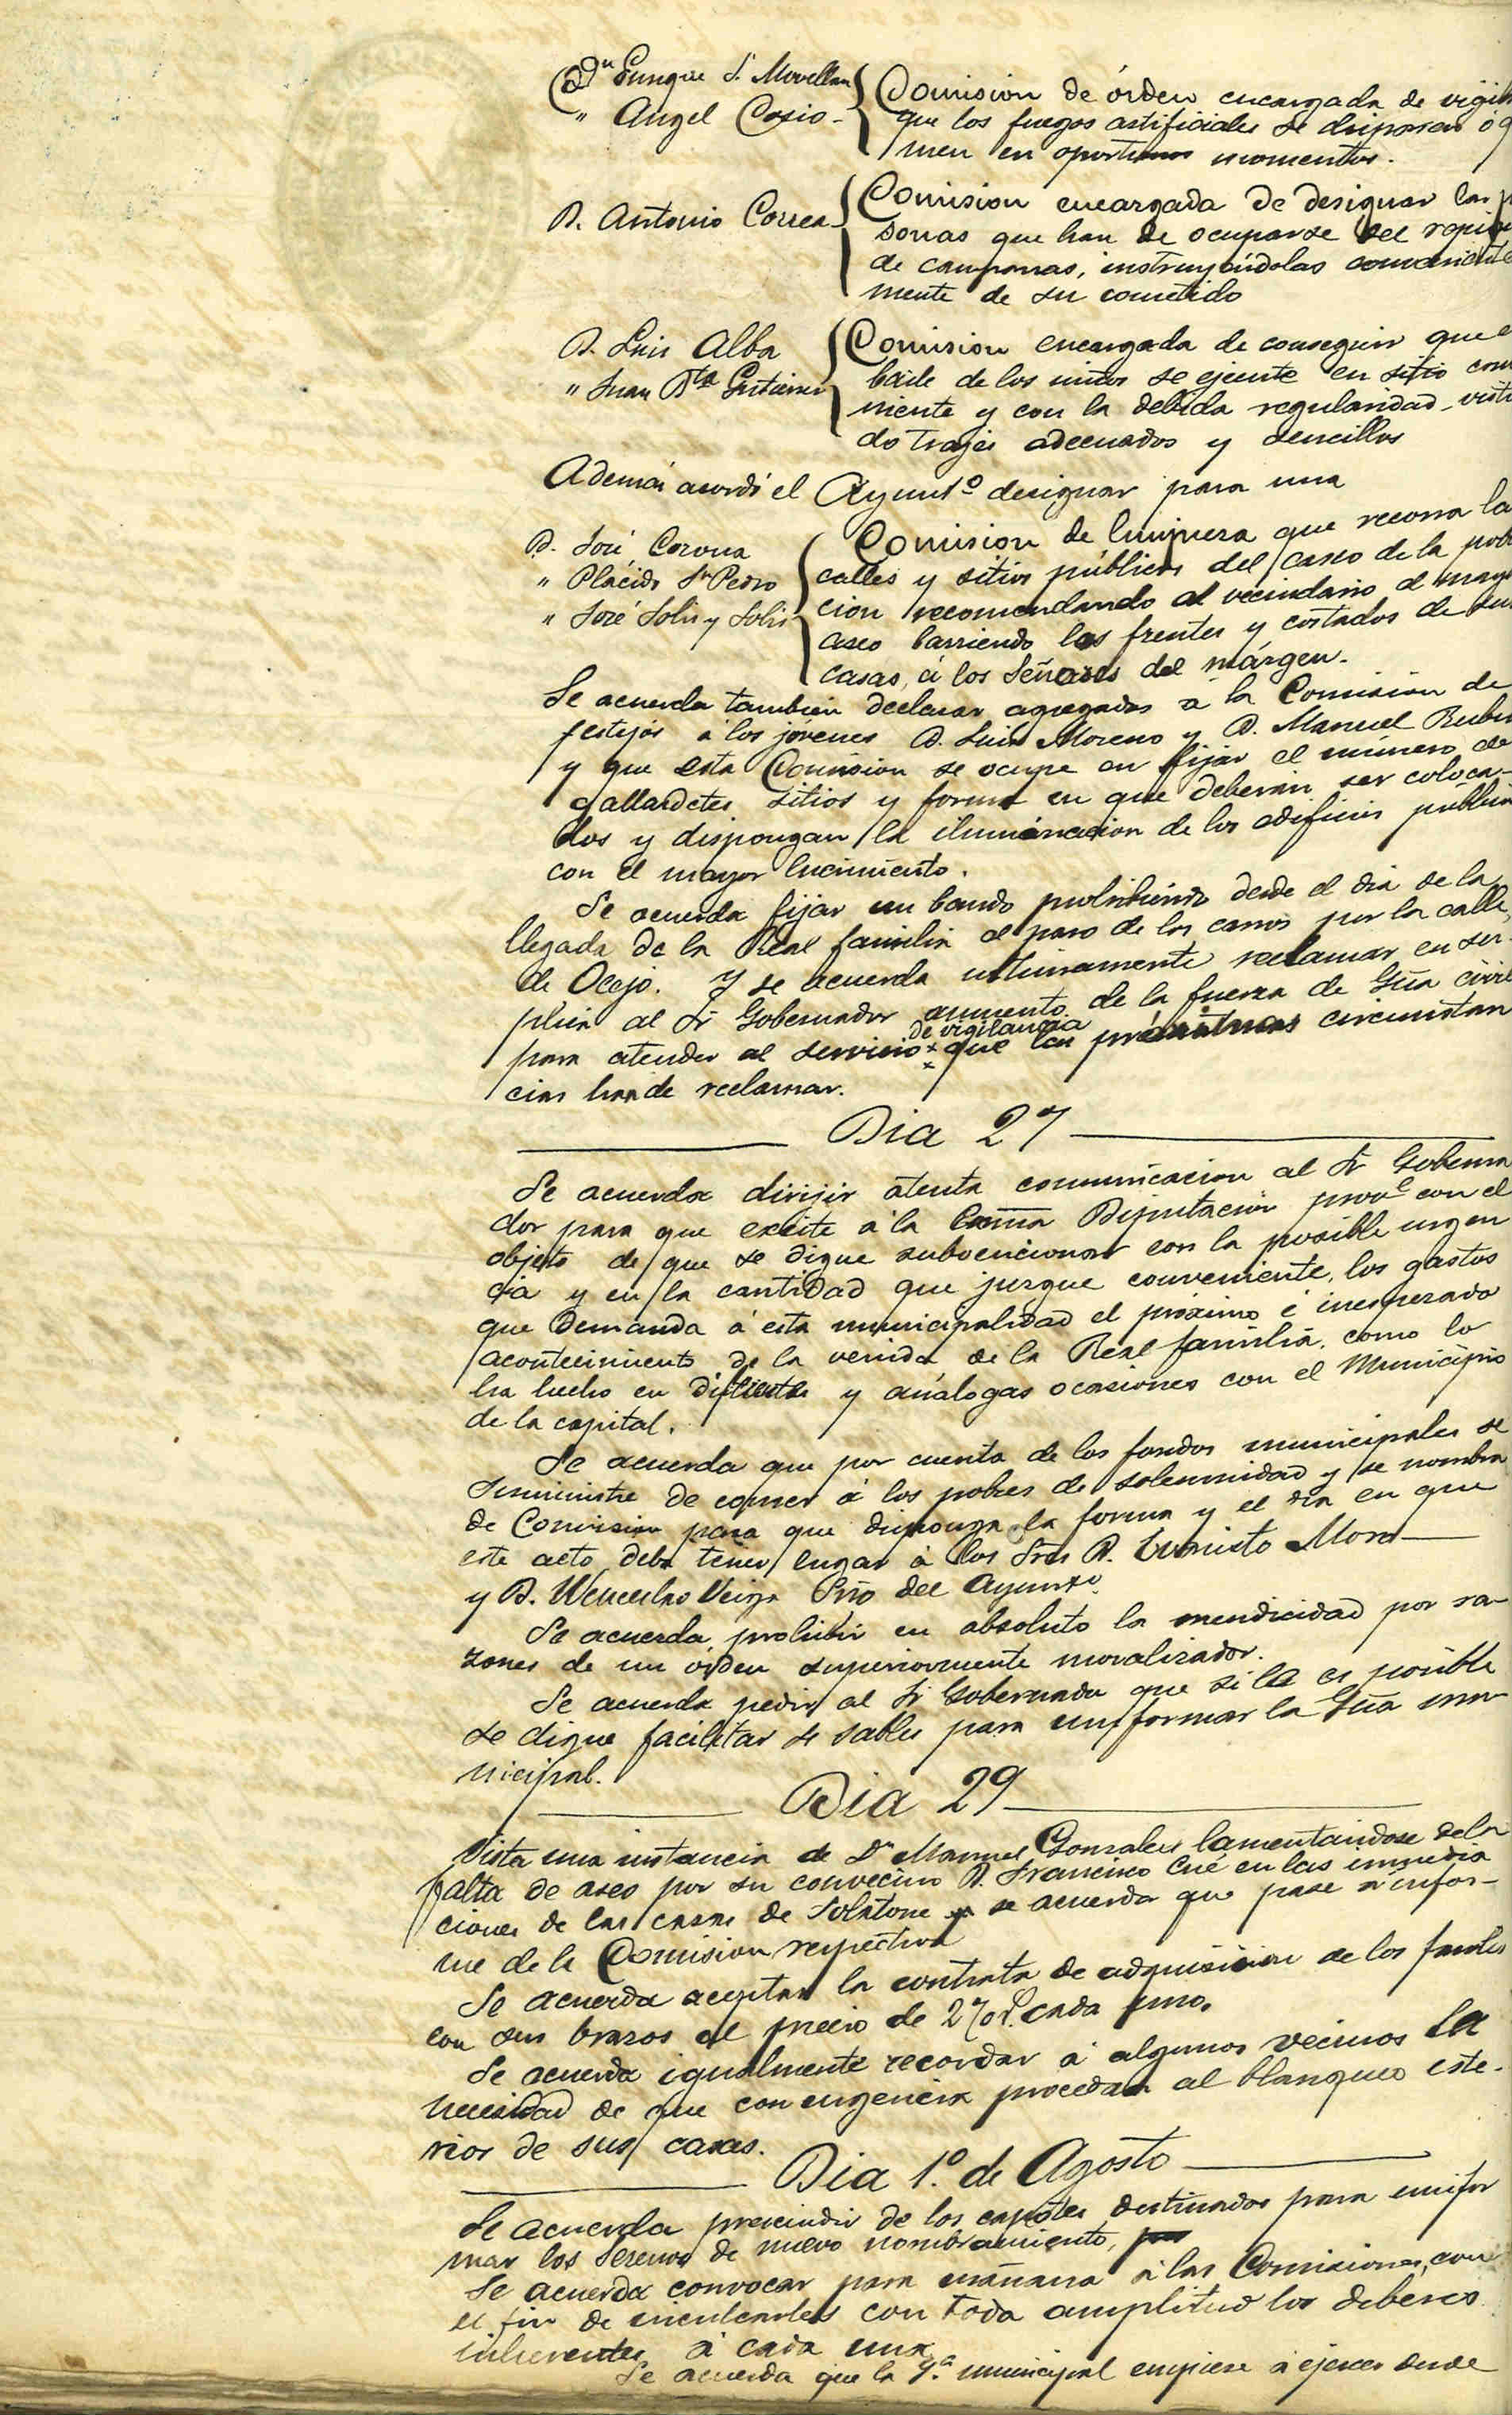 Dn Enrique S. Movellan
" Angel Cosio -
Comision de órden encargada de vigil
que los fuegos artificiales se disparen ó q
men en oportunos momentos.
D. Antonio Correa
Comision encargada de designar las p
sonas que han de ocuparse del repiq
de campanas, instruyéndolas conveniente
mente de su cometido
D. Luis Alba
" Juan Bta Gutierrez
Comision encargada de conseguir que e
baile de los niños se ejecute en sitio conv
niente y con la debida regularidad, visti
do trajes adecuados y sencillos
Además acordó el Ayuntº designar para una
D. José Corona
" Plácido Sn Pedro
" José Solis y Solis
Comision de limpieza que recorra la
calles y sitios públicos del casco de la pobl
cion recomendando al vecindario el mayo
aseo barriendo los frentes y costados de sus
casas, á los Señores del márgen.
Se acuerda tambien declarar agregados á la Comision de
festejos á los jóvenes D. Luis Moreno y D. Manuel Rubin
y que esta Comision se ocupe en fijar el número de
gallardetes sitios y forma en que deberán ser coloca-
dos y dispongan la iluminacion de los edificios públicos
con el mayor lucimiento.
Se acuerda fijar un bando prohibiendo desde el dia de la
llegada de la Real familia el paso de los carros por la calle
de Ocejo. Y se acuerda ultimamente reclamar en sú-
plica al Sr Gobernador aumento de la fuerza de Gúa civil
de vigilancia
para atender al servicio que las próximas circunstan
cias han de reclamar.
Dia 27
Se acuerda dirijir atenta comunicacion al Sr Goberna
dor para que excite á la Excma Diputacion provl con el
objeto de que se digne subvencionar con la posible urgen
cia y en la cantidad que juzgue conveniente, los gastos
que demanda á esta municipalidad el próximo é inesperado
acontecimiento de la venida de la Real familia, como lo
ha hecho en distintas y análogas ocasiones con el Municipio
de la capital.
Se acuerda que por cuenta de los fondos municipales se
suministre de comer á los pobres de solemnidad y se nombra
de Comision para que disponga la forma y el dia en que
este acto debe tener lugar á los Sres D. Evaristo Mora
y D. Wenceslao Veiga Srio del Ayuntº
Se acuerda prohibir en absoluto la mendicidad por ra-
zones de un órden superiormente moralizador.
Se acuerda pedir al Sr Gobernador que si le es posible
se digne facilitar sables para uniformar la Gúa mu-
nicipal.
Dia 29
Vista una instancia de Dn Manuel Gonzalez lamentándose de la
falta de aseo por su convecino D. Francisco Cué en las inmedia
ciones de las casas de Solatorre se acuerda que pase á infor-
me de la Comision respectiva
Se acuerda aceptar la contrata de adquisicion de los faroles
con sus brazos al precio de 270 r. cada uno.
Se acuerda igualmente recordar á algunos vecinos la
necesidad de que con urgencia procedan al blanqueo este-
rior de sus casas.
Dia 1.º de Agosto
Se acuerda prescindir de los capotes destinados para unifor
mar los Serenos de nuevo nombramiento,
Se acuerda convocar para mañana á las Comisiones, con
el fin de inculcarles con toda amplitud los deberes
inherentes á cada una.
Se acuerda que la G.a municipal empiece á ejercer desde